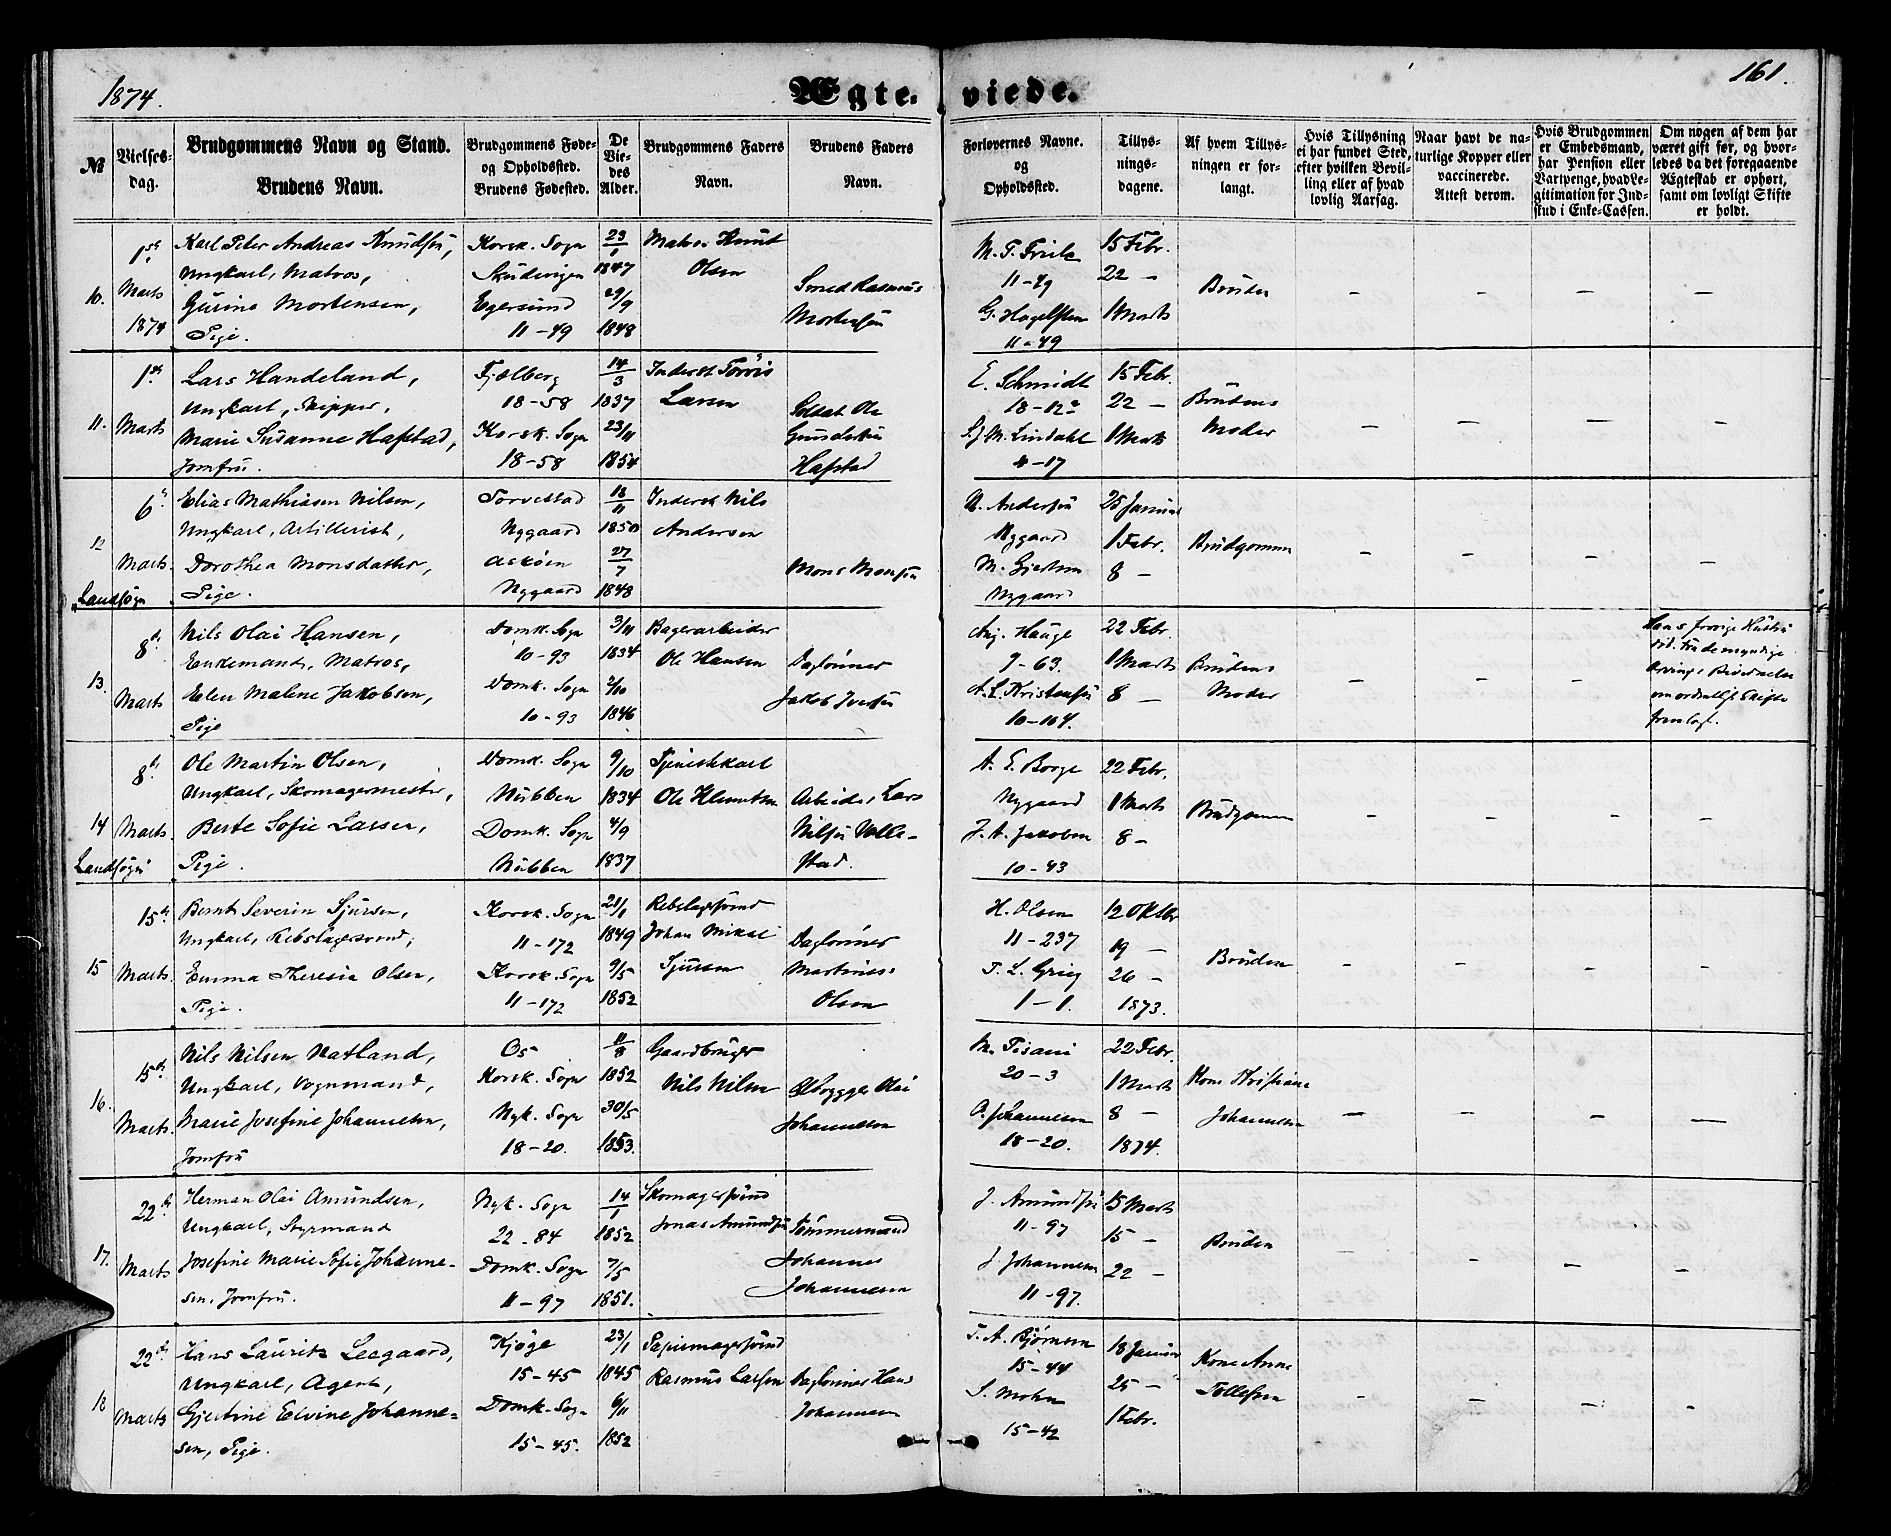 1874.
Ægte-viede.
161.
№
Vielses-dag.
Brudgommens Navn og Stand.
Brudens Navn.
Brudgommens Føde- og Opholdssted.
Brudens Fødested.
De Viedes Alder.
Brudgommens Faders Navn.
Brudens Faders Navn.
Forlovernes Navne. og Opholdssted.
Tillysningsdagene.
Af hvem Tillysningen er forlangt.
Hvis Tillysning ei har fundet Sted, efter hvilken Bevilling eller af hvad lovlig Aarsag.
Naar havt de naturlige Kopper eller vaccinerede. Attest derom.
Hvis Brudgommen er Embedsmand, har Pension eller Vartpenge, hvad Legitimation for Indskud i Enke-Cassen.
Om nogen af dem har været gift før, og hvorledes da det foregaaende Ægteskab er ophørt, samt om lovligt Skifte er holdt.
10.
1ste Marts 1874
Karl Peter Andreas Knudsen,
Ungkarl, Matros,
Gurine Mortensen,
Pige.
Korsk. Sogn
Skudevigen
Egersund
11-49
23/1 1847
29/9 1848
Matros Knut
Olsen
Smed Rasmus
Mortensen
11-49
G. Hagelsten
11-49
15 Febr.
22 —
1 Marts
Bruden
— — — —
11.
1ste Marts
Lars Handeland,
Ungkarl, Skipper,
Marie Susanne Hafstad,
Jomfru.
Fjelberg
18-58
Korsk. Sogn
18-58
14/3 1837
23/11 1854
Larsen
Soldat Ole
Hafstad
E. Schmidt
18-12a
M. Lindahl
4-17
15 Febr.
22 —
1 Marts
Brudens
Moder
— — — —
12
Landsogn
6te Marts.
Elias Mathiasen Nilsen,
Ungkarl, Artillerist,
Dorothea Monsdatter,
Pige.
Torvestad
Nygaard
Askøen
Nygaard
18/11 1850
27/7 1848
Inderst Nils
Andersen
Mons Monsen
N. Andersen
Nygaard
M. Gjertsen
Nygaard
25 Januar
1 Febr.
8 —
Brudgommen
— — — —
13.
8de Marts
Nils Olai Hansen,
Enkemand, Matros,
Elen Malene Jakobsen,
Pige
Domk. Sogn
10-93
Domk. Sogn
10-93
3/11 1834
2/10 1846
Bagerarbeider
Ole Hansen
Daglønner
Jakob Iversen
Aug. Hauge
9-63.
A. L. Kristensen
10-104.
22 Febr.
1 Marts
8 —
Brudens
Moder
— — —
Hans forrige Hustru
død. Fra de myndige
Arvinger Bevidnelse
om ordentligt Skifte
fremlagt.
14
Landsogn
8de Marts.
Ole Martin Olsen,
Ungkarl, Skomagermester,
Berte Sofie Larsen,
Pige.
Domk. Sogn
Nubben
Domk. Sogn
Nubben
9/10 1834
4/9 1837
Tjenestekarl
Ole Klemetsen
Arbeider Lars
Nilsen Vollestad.
A. E. Borge
Nygaard
J. A. Jakobsen
10-43
22 Febr.
1 Marts
8 —
Brudgommen
— — — —
15
15de Marts.
Bernt Severin Sjursen,
Ungkarl, Rebslagersvend,
Emma Theresia Olsen,
Pige.
Korsk. Sogn
11-172
Korsk. Sogn
11-172
21/1 1849
9/5 1852
Rebslagersvend
Johan Mikal
Sjursen
Daglønner
Martinus
Olsen
H. Olsen
11-237
T. L. Grieg
1-1.
12 Oktbr
19 —
26 —
1873.
Bruden
— — — —
16.
15de Marts.
Nils Nilsen Natland,
Ungkarl, Vognmand,
Marie Josefine Johannesen,
Jomfru
Os
Korsk. Sogn
Nyk. Sogn
18-20.
11/8 1852
30/5 1853.
Gaardbruger
Nils Nilsen
Ølbrygger Olai
Johannesen
M. Pisani
20-3
O. Johannesen
18-20.
22 Febr.
1 Marts
8 —
1874.
Kone Kristiane
Johannesen
— — — —
17.
22de Marts
Herman Olai Amundsen,
Ungkarl, Styrmand
Josefine Marie Sofie Johannesen, Jomfru.
Nyk. Sogn
22-84
Domk. Sogn
11-97
14/1 1852
7/5 1851.
Skomagersvend
Jonas Amundsen
Tømmermand
Johannes
Johannesen
J. Amundsen
11-97
J. Johannesen
11-97.
15 Marts
15 —
22 —
Bruden
— — — —
18
22de Marts
Hans Lauritz Leegaard,
Ungkarl, Agent,
Gjertine Elvine Johannesen, Pige.
Kjøge
15-45
Domk. Sogn
15-45.
23/1 1845
6/11 1852
Papirmagersvend
Rasmus Larsen
Daglønner Hans
Johannesen
T. A. Bjørnsen
15-44
S. Mohn
15-42
18 Januar
25 —
1 Febr.
Kone Anne
Tollefsen
— — — —